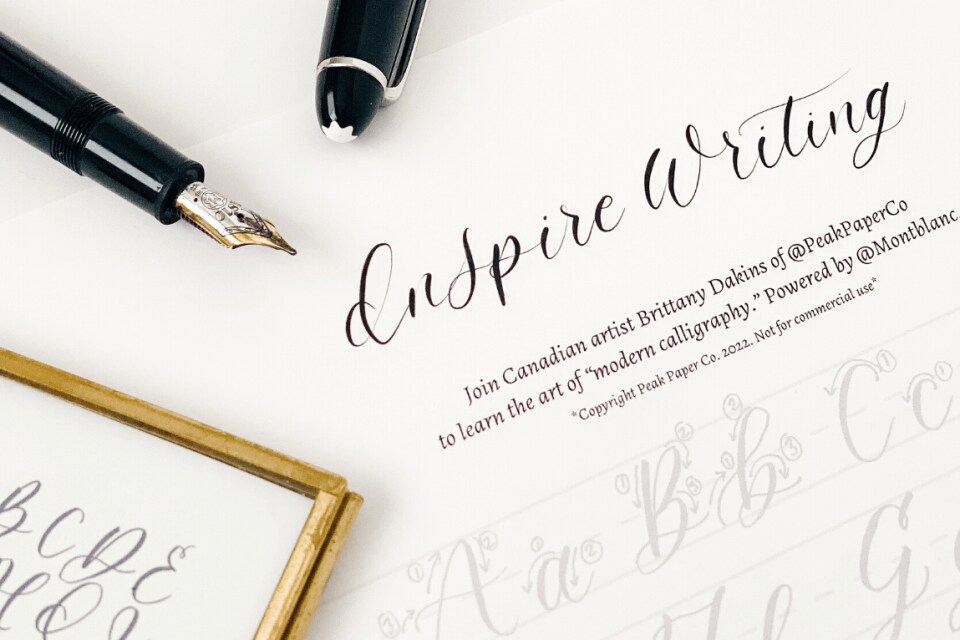 Inspire Writing
Join Canadian artist Brittany Dakins of @PeakPaperCo
to learn the art of “modern calligraphy.” Powered by @Montblanc.
*Copyright Peak Paper Co. 2022. Not for commercial use*
A a B b C c
G
B C D E